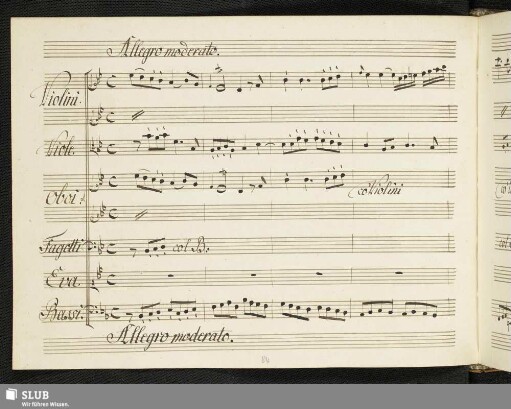 Allegro moderato.
Violini.
Viole.
Oboi.
col Violini
Fagotti
col B:
Eva.
Bassi.
Allegro moderato.
SLUB
Wir führen Wissen.